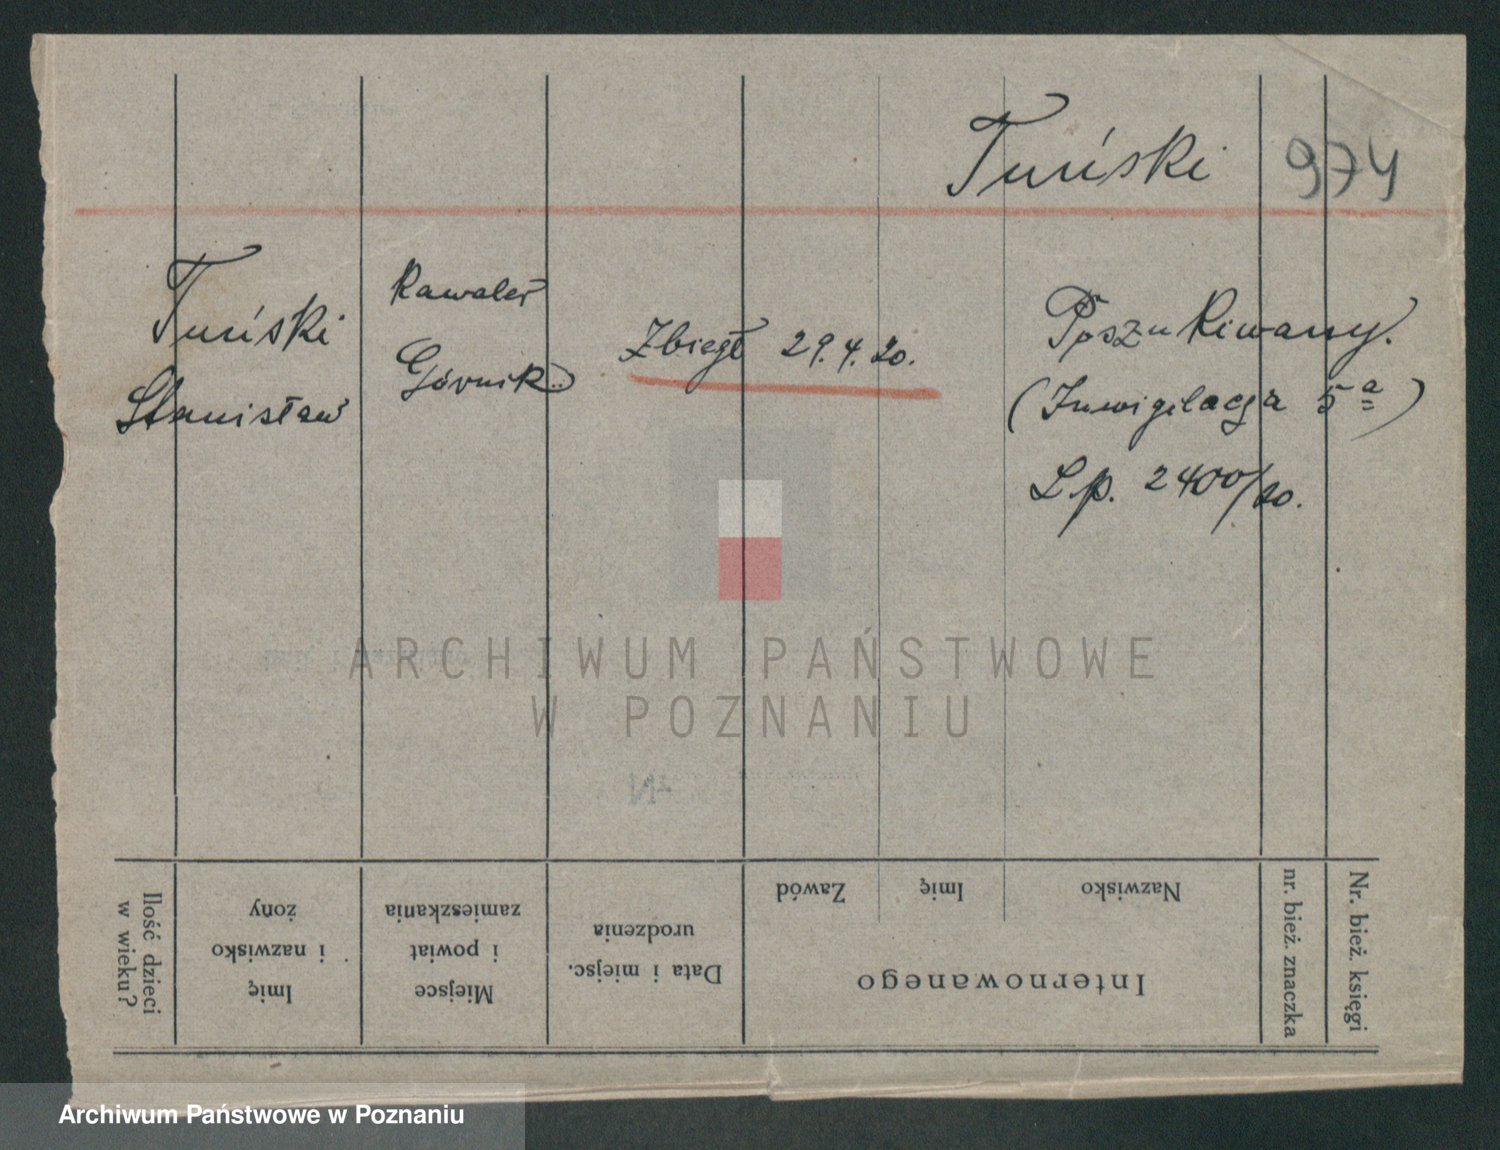 Tuński 974
Tuński
Stanisław
Kawaler
Górnik
Zbiegł 29.4.20.
Poszukiwany.
(Inwigilacja 5a)
L.p. 2400/20.
ARCHIWUM PAŃSTWOWE
W POZNANIU
Nr. bież. księgi
nr. bież. znaczka
Internowanego
Nazwisko
Imię
Zawód
Data i miejsc.
urodzenia
Miejsce
i powiat
zamieszkania
Imię
i nazwisko
żony
Ilość dzieci
w wieku?
Archiwum Państwowe w Poznaniu